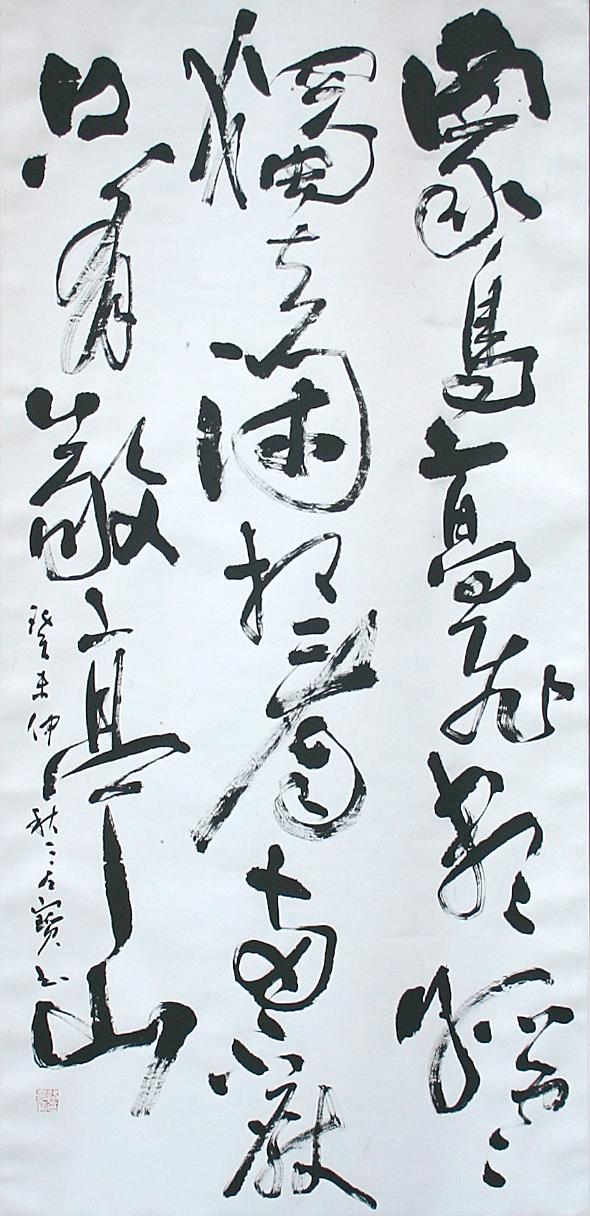 眾鳥高飛盡孤雲
獨去閑相看兩不厭
只有敬亭山
癸未仲秋寶书